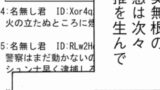 4:名無し君 ID:Xor4q
火の立たぬところに煙
5:名無し君 ID:RLw2H
警察はまだ動かないの
シュンナ早く逮捕しろ
実無根の
意は次々
推を生んで